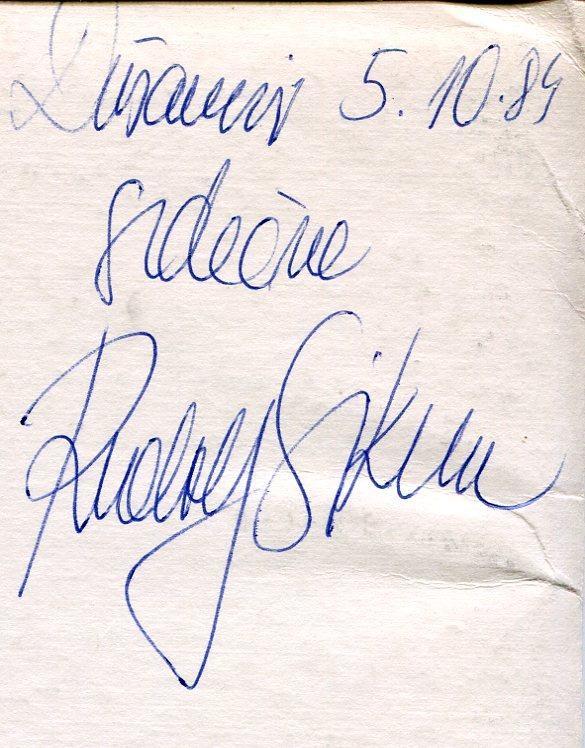 Dušanovi 5. 10. 84
srdečne
Rudolf Sikora